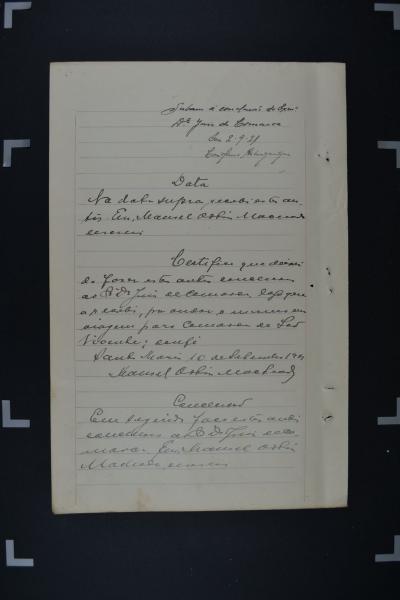 Subam á conclusão do Exmº
Dr. Juiz de Comarca
Em 2-9-
Data
Na data supra, recebi estes au-
tos. Eu, Manoel Machado
escrevi
Certifico que deixei
de fazer estes autos conclusos
ao Dr. Juiz de Comarca logo que
o recebi, por andar o mesmo em
viagem para Comarca de São
Vicente; dou fé
Santa Maria 10 de Setembro
Manoel Machado
Conclusão
Em seguida faço estes autos
conclusos ao Dr. Juiz de Co-
marca. Eu, Manoel
Machado, escrevi